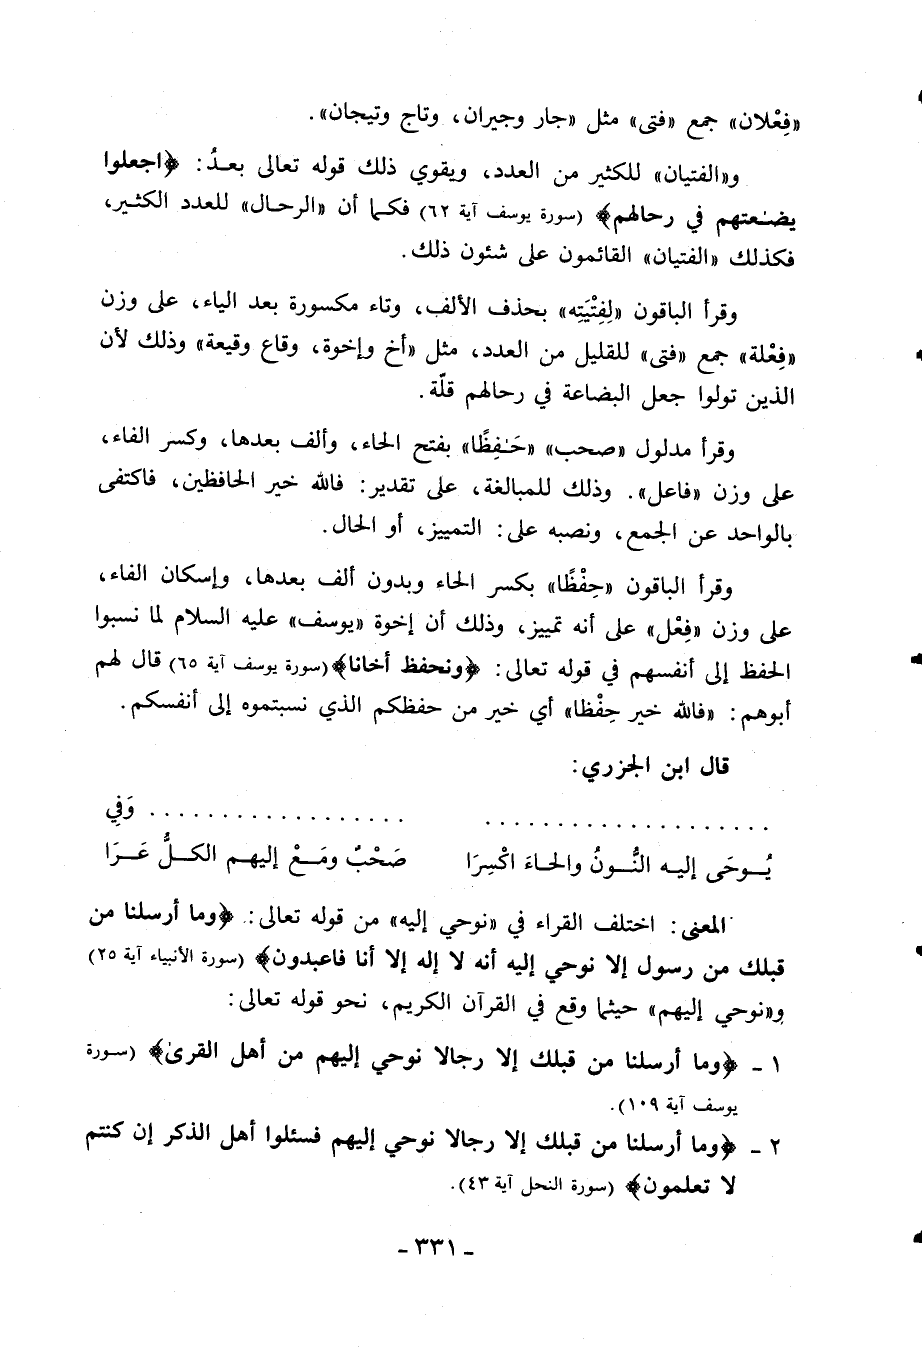 «فِعْلان» جمع «فتى» مثل «جار وجيران، وتاج وتيجان».
و«الفتيان» للكثير من العدد، ويقوي ذلك قوله تعالى بعدُ: ﴿اجعلوا
بضـعتهم في رحالهم﴾ (سورة يوسف آية ٦٢) فكـما أن «الرحـال» للعدد الكثـير،
فكذلك «الفتيان» القائمون على شئون ذلك.
وقرأ الباقون «لِفِتْيَتِه» بحذف الألف، وتاء مكسورة بعد الياء، على وزن
«فِعْلة» جمع «فتى» للقليل من العدد، مثل «أخ وإخوة، وقاع وقيعة» وذلك لأن
الذين تولوا جعل البضاعة في رحالهم قلّة.
وقرأ مدلول «صحب» «حَـٰفِظًا» بفتح الحاء، وألف بعدها، وكسر الفاء،
على وزن «فاعل». وذلك للمبالغة، على تقدير: فالله خير الحافظين، فاكتفى
بالواحد عن الجمع، ونصبه على: التمييز، أو الحال.
وقرأ الباقون «حِفْظًا» بكسر الحاء وبدون ألف بعدها، وإسكان الفاء،
على وزن «فِعْل» على أنه تمييز، وذلك أن إخوة «يوسف» عليه السلام لما نسبوا
الحفظ إلى أنفسهم في قوله تعالى: ﴿ونحفظ أخانا﴾ (سورة يوسف آية ٦٥) قال لهم
أبوهم: «فالله خير حِفْظا» أي خير من حفظكم الذي نسبتموه إلى أنفسكم.
قال ابن الجزري:
. . . . . . . . . . . . . . . . . . . . . . . . . . . . . . . . . . . . . . وَفِي
يُـوحَى إليـه النُّـونُ والحـاءَ اكْسِرَا صَحْبٌ ومَـعْ إليهـم الكـلُّ عَـرَا
المعنى: اختلف القراء في «نوحي إليه» من قوله تعالى: ﴿وما أرسلنا من
قبلك من رسول إلا نوحي إليه أنه لا إله إلا أنا فاعبدون﴾ (سورة الأنبياء آية ٢٥)
و«نوحي إليهم» حيثما وقع في القرآن الكريم، نحو قوله تعالى:
١ ـ ﴿وما أرسلنا من قبلك إلا رجالا نوحي إليهم من أهل القرىٰ﴾ (سـورة
يوسف آية ١٠٩).
٢ ـ ﴿وما أرسلنا من قبلك إلا رجالا نوحي إليهم فسئلوا أهل الذكر إن كنتم
لا تعلمون﴾ (سورة النحل آية ٤٣).
ـ ٣٣١ ـ